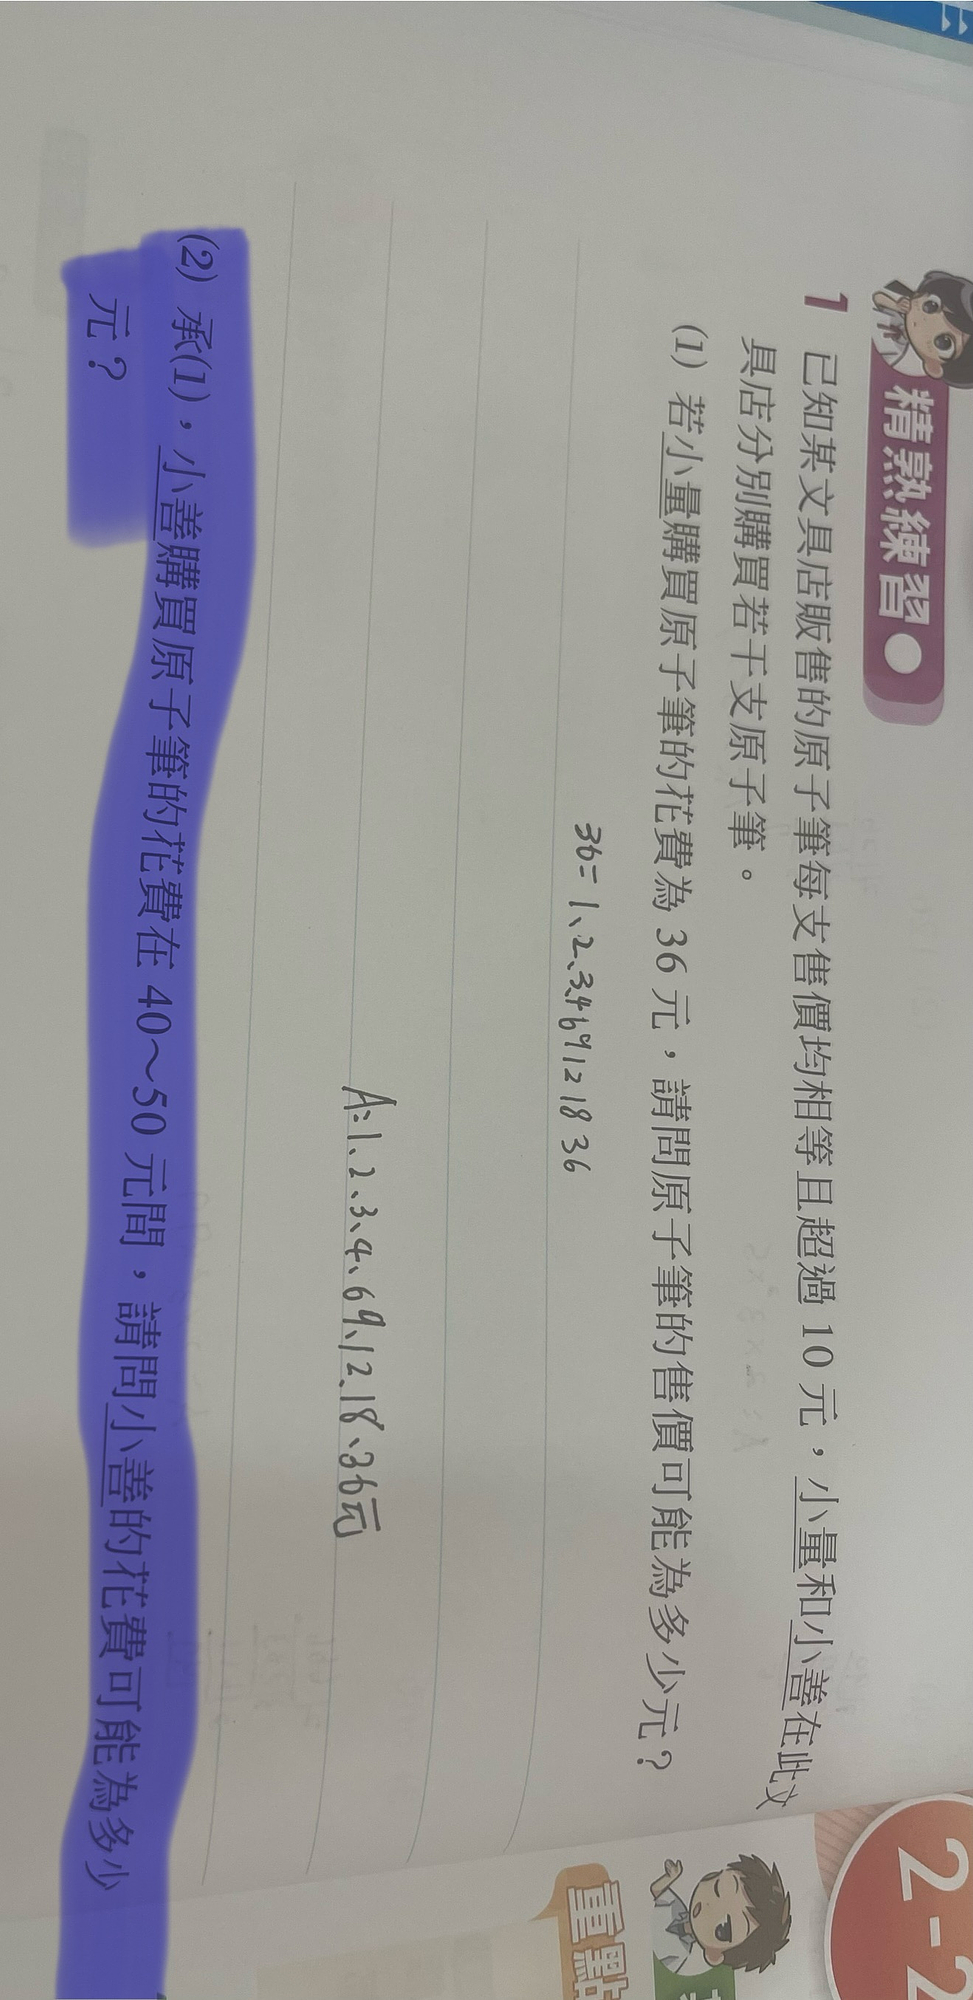 2-2
精熟練習
1 已知某文具店販售的原子筆每支售價均相等且超過 10 元，小量和小善在此文
具店分別購買若干支原子筆。
(1) 若小量購買原子筆的花費為 36 元，請問原子筆的售價可能為多少元？
36=1、2、3、4 6 9 12 18 36
A:1、2、3、4、6 9、12、18、36元
(2) 承(1)，小善購買原子筆的花費在 40～50 元間，請問小善的花費可能為多少
元？
重點